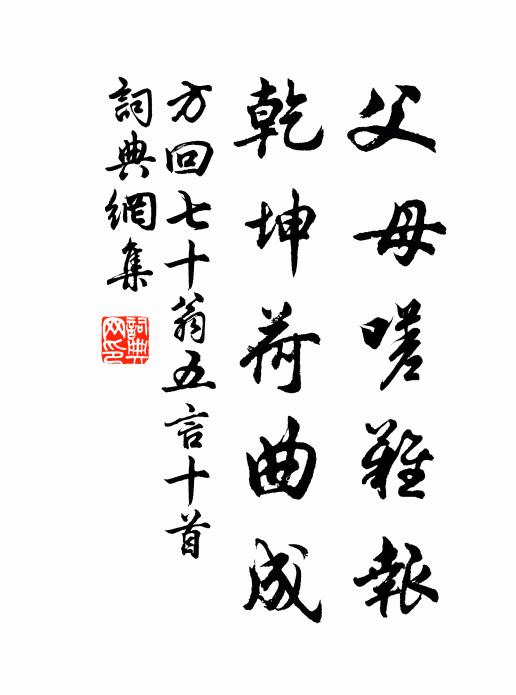 父母嗟難報
乾坤荷曲成
方回七十翁五言十首
詞典網集
詞典網印